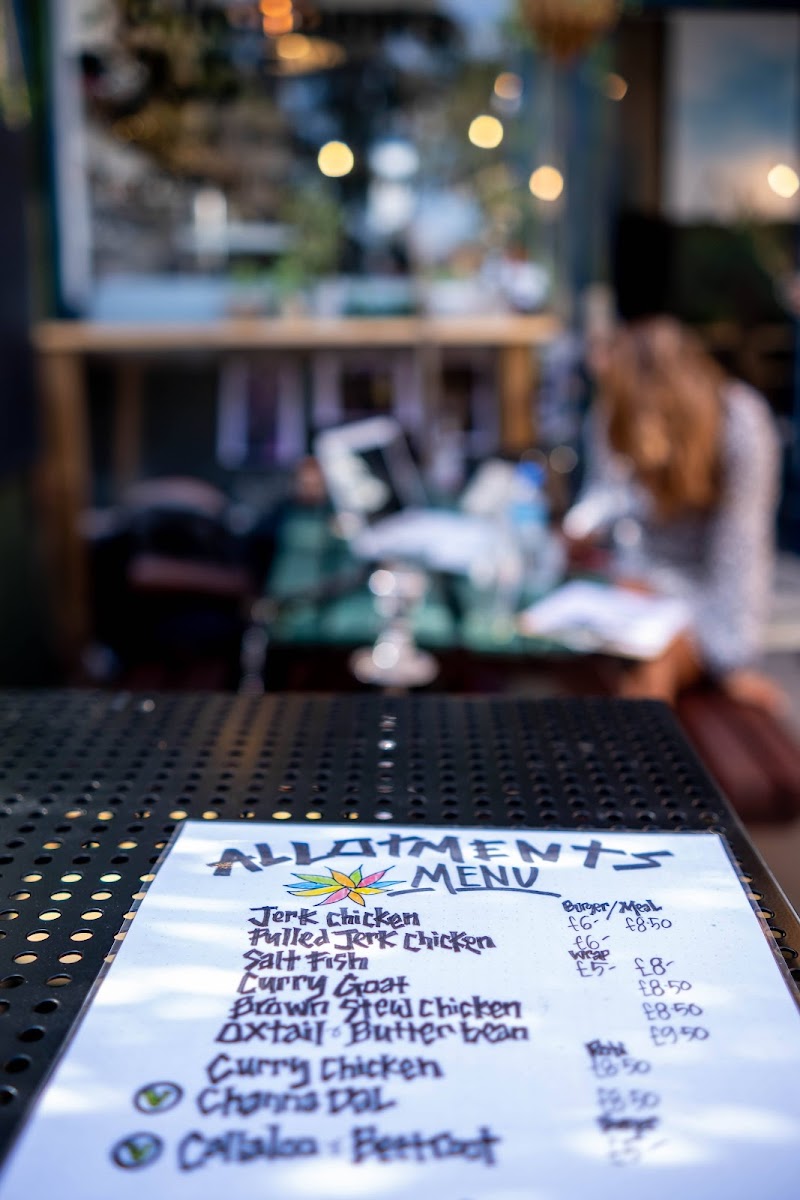 ALLOTMENTS
MENU
Burger/Meal
Jerk Chicken £6- £8·50
Pulled Jerk Chicken £6-
Wrap
Salt Fish £5- £8-
Curry Goat £8·50
Brown Stew Chicken £8·50
Oxtail & Butterbean £9·50
Roti
Curry Chicken £8·50
V Channa Dal £8·50
Burger
V Callaloo & Beetroot £5-